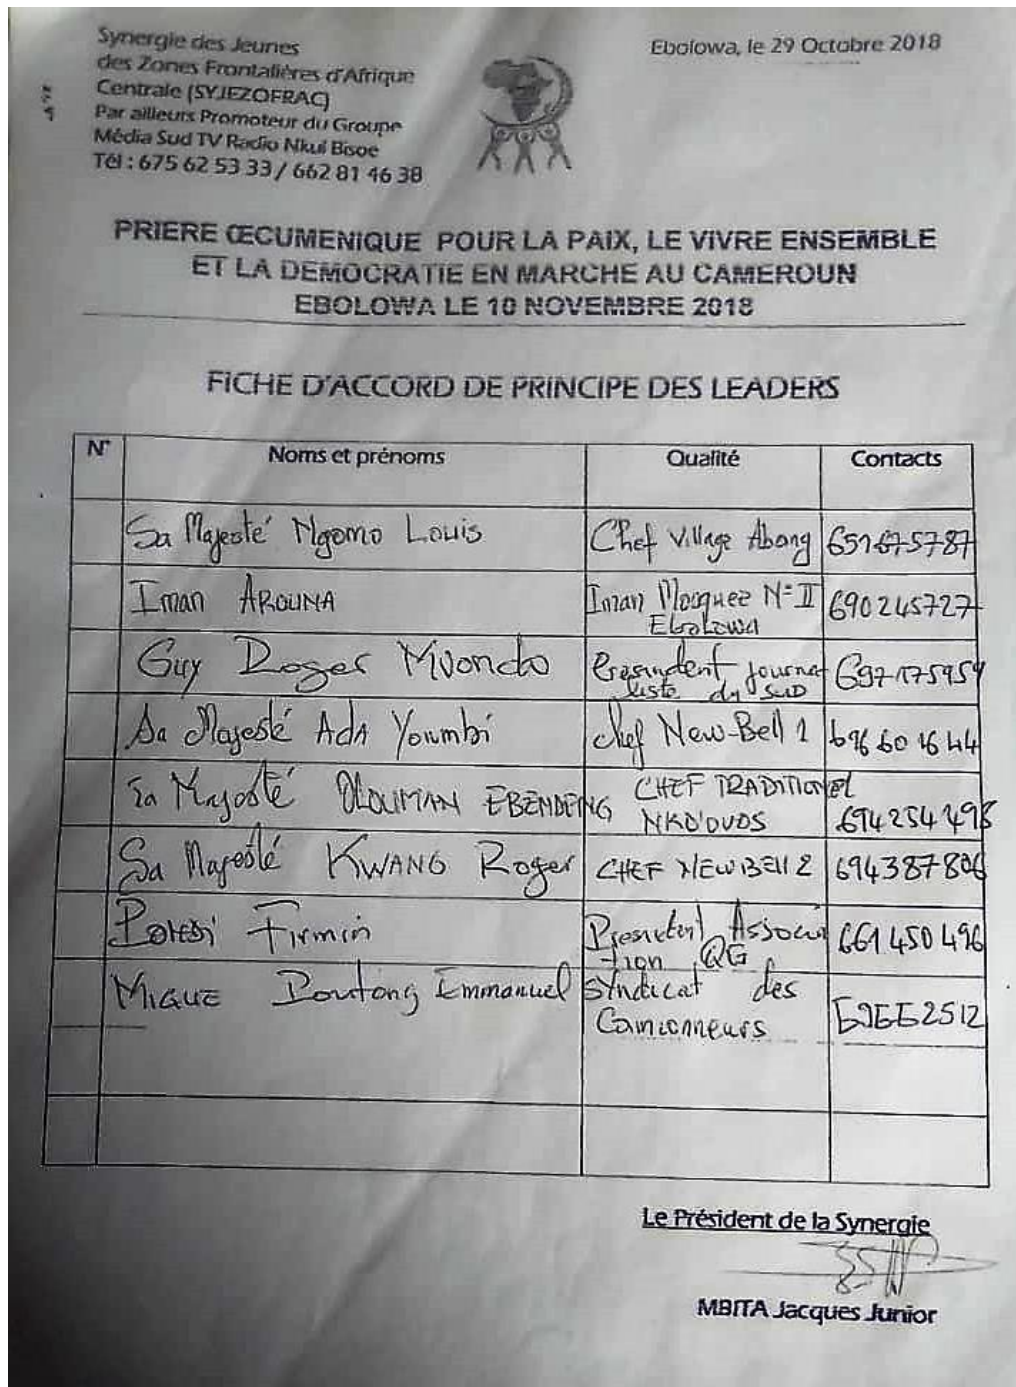 Synergie des Jeunes
des Zones Frontalières d'Afrique
Centrale (SYJEZOFRAC)
Par ailleurs Promoteur du Groupe
Média Sud TV Radio Nkul Bisoe
Tél : 675 62 53 33 / 662 81 46 38
Ebolowa, le 29 Octobre 2018
PRIERE ŒCUMENIQUE POUR LA PAIX, LE VIVRE ENSEMBLE
ET LA DEMOCRATIE EN MARCHE AU CAMEROUN
EBOLOWA LE 10 NOVEMBRE 2018
FICHE D'ACCORD DE PRINCIPE DES LEADERS
N° Noms et prénoms Qualité Contacts
Sa Majesté Ngomo Louis Chef Village Abang 651675787
Iman AROUNA Iman Mosquee N=II 690245727
Ebolowa
Guy Roger Mvondo journa 697175959
liste du SUD
Sa Majesté AdA Youmbi chef New-Bell 1 696 60 16 44
Sa Majesté OLOUMAN EBENDENG CHEF TRADITIONEL
NKO'OVOS 694254498
Sa Majesté KWANG Roger CHEF NEWBEll 2 694387806
Firmin President Associa 661 450 496
tion QG
MIGUE Emmanuel Syndicat des
Camionneurs
Le Président de la Synergie
MBITA Jacques Junior